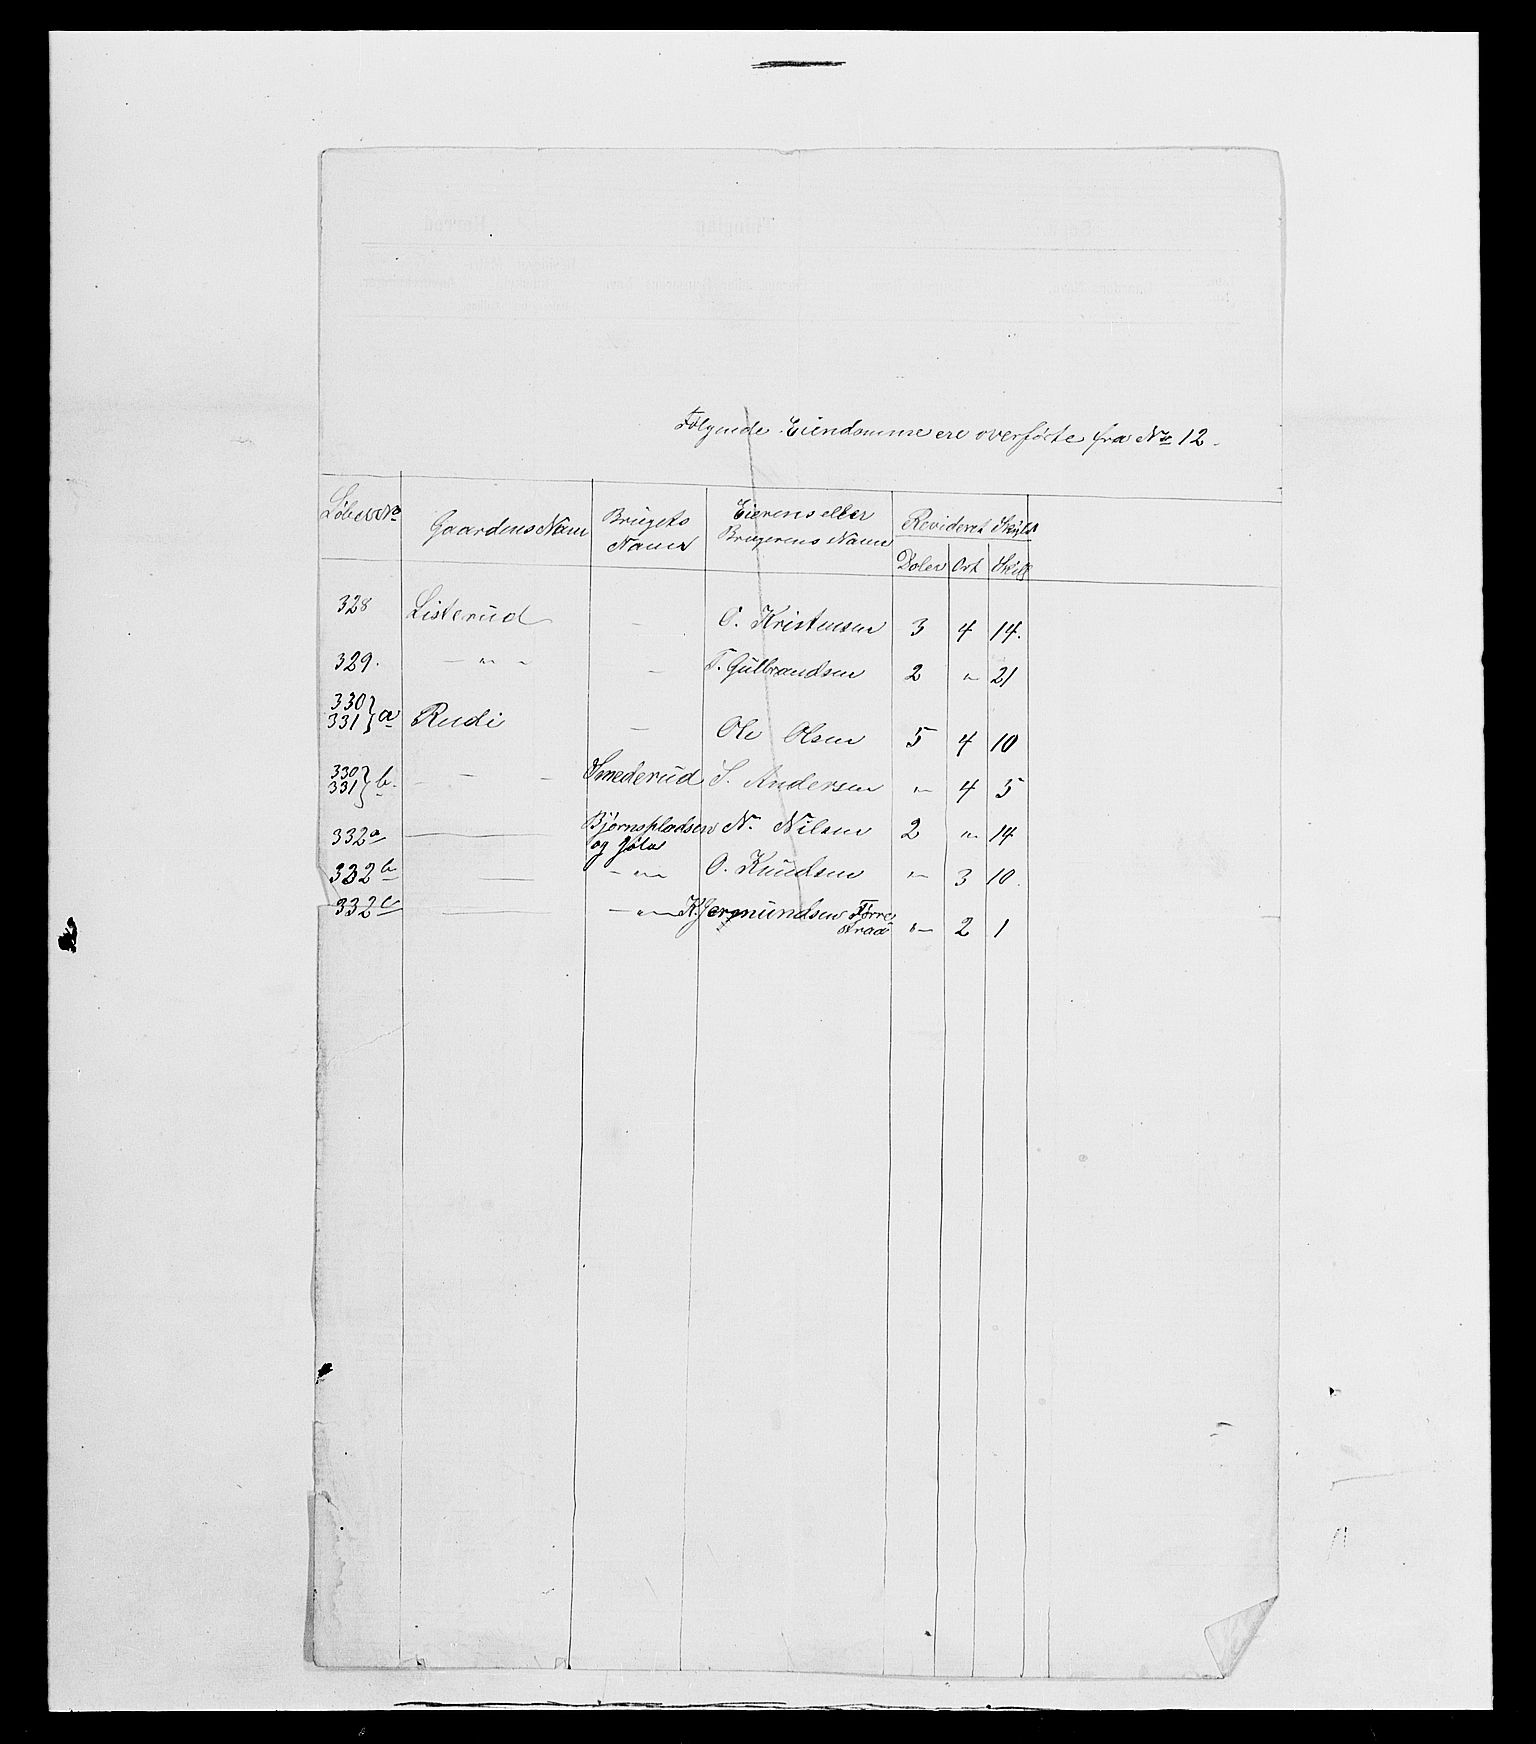 Følgende Eiendomme ere overførte fra No 12.
LøbeNo Gaardens Navn Brugets Navn Eierens eller Brugerens Navn Revideret Skyld
Daler Ort Skill
328 Listerud — O. Kristensen 3 4 14.
329. — „ — — T. Gulbrandsen 2 „ 21
330 331 } a Rudi — Ole Olsen 5 4 10
330 331 } b. — — — Smederud S. Andersen „ 4 5
332a — Bjørnspladsen og Jola N. Nilsen 2 „ 14
332b — — „ — O. Knudsen „ 3 10.
332c — — „ — K. Jermundsen Tørre „ 2 1